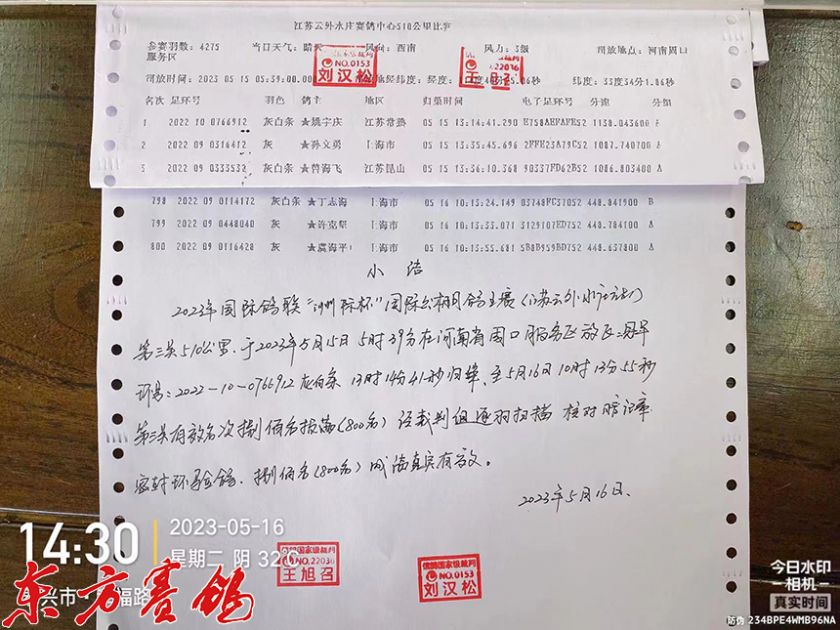 江苏云外水庄赛鸽中心510公里比赛
参赛羽数：4275 当日天气：晴天 风向：西南 风力：3级 司放地点：河南周口
服务区
司放时间：2023 05 15 05:39:00.00 纬度：33度34分1.86秒
名次 足环号 羽色 鸽主 地区 归巢时间 电子足环号 分速 分组
1 2022 10 0766912 灰白条 ★姚宇庆 江苏常熟 05 15 13:14:41.290 E758AEFAFE52 1138.043600
2 2022 09 0316412 灰 ★孙文勇 上海市 05 15 13:35:45.696 2FFE23A79C52 1087.740700
3 2022 09 0333532 灰白条 ★曾海飞 江苏昆山 05 15 13:36:10.368 90337FD62B52 1086.803400 A
798 2022 09 0114172 灰白条 ★丁志海 上海市 05 16 10:13:24.149 03748FC37052 448.841900 B
799 2022 09 0448040 灰 ★许克坚 上海市 05 16 10:13:33.071 3129107ED752 448.784100 A
800 2022 09 0116428 灰 ★虞海平 上海市 05 16 10:13:55.681 5B8B959BD752 448.637800 A
小结
2023年国际鸽联 国际公棚鸽主赛（江苏云外水庄
第三关510公里，于2023年5月15日5时39分在河南省周口服务区放飞，最早
环号：2022-10-0766912 灰白条 13时14分41秒归巢，至5月16日10时13分55秒
第三关有效名次捌佰名报满（800名）经裁判组逐羽扫描 核对 暗记章
密封环验鸽，捌佰名（800名）成绩真实有效。
2023年5月16日
信鸽国家级裁判
NO.0153
刘汉松
22036
王旭召
信鸽国家级裁判
NO.22036
王旭召
信鸽国家级裁判
NO.0153
刘汉松
14:30
2023-05-16
星期二 阴 32℃
东方赛鸽
今日水印
相机
真实时间
防伪 234BPE4WMB96NA